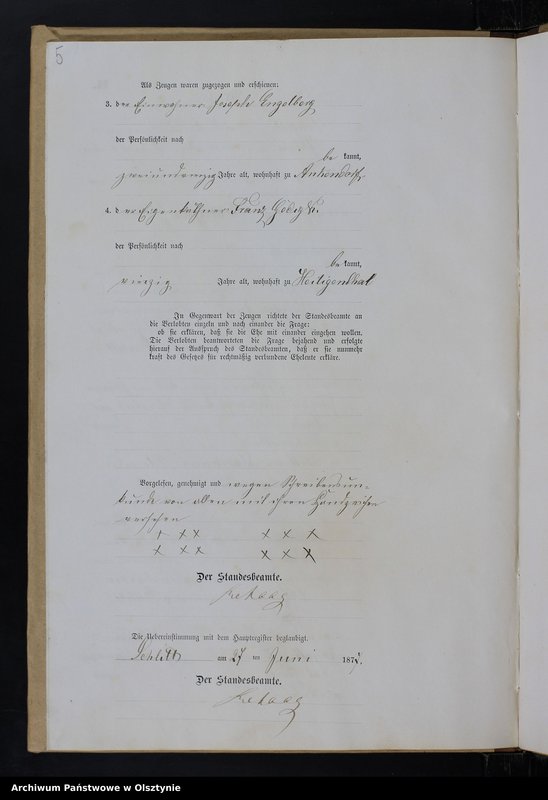 5
Als Zeugen waren zugezogen und erschienen:
3. der Einwohner Joseph Engelberg
der Persönlichkeit nach
be kannt,
zweiundvierzig Jahre alt, wohnhaft zu Ankendorf,
4. der Eigenkäthner Franz
der Persönlichkeit nach
be kannt,
vierzig Jahre alt, wohnhaft zu Heiligenthal
In Gegenwart der Zeugen richtete der Standesbeamte an
die Verlobten einzeln und nach einander die Frage:
ob sie erklären, daß sie die Ehe mit einander eingehen wollen.
Die Verlobten beantworteten die Frage bejahend und erfolgte
hierauf der Ausspruch des Standesbeamten, daß er sie nunmehr
kraft des Gesetzes für rechtmäßig verbundene Eheleute erkläre.
Vorgelesen, genehmigt und wegen Schreibensun-
kunde von allen mit ihren Handzeichen
versehen
+ ++ + + +
+ ++ + + +
Der Standesbeamte.
Die Uebereinstimmung mit dem Hauptregister beglaubigt.
Schlitt am 27 ten Juni 187
Der Standesbeamte.
Archiwum Państwowe w Olsztynie